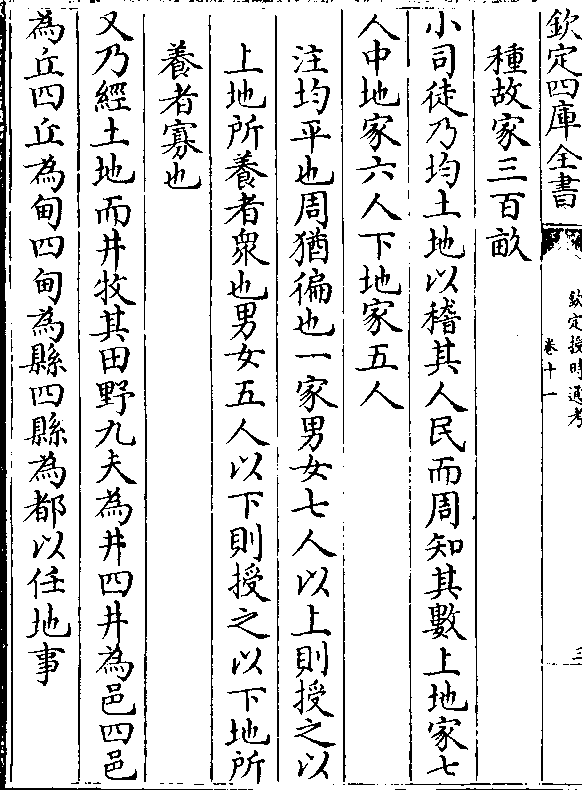 欽定四庫全書
欽定授時通考
卷十一
三
種故家三百畝
小司徒乃均土地以稽其人民而周知其數上地家七
人中地家六人下地家五人
注均平也周猶徧也一家男女七人以上則授之以
上地所養者衆也男女五人以下則授之以下地所
養者寡也
又乃經土地而井牧其田野九夫為井四井為邑四邑
為丘四丘為甸四甸為縣四縣為都以任地事